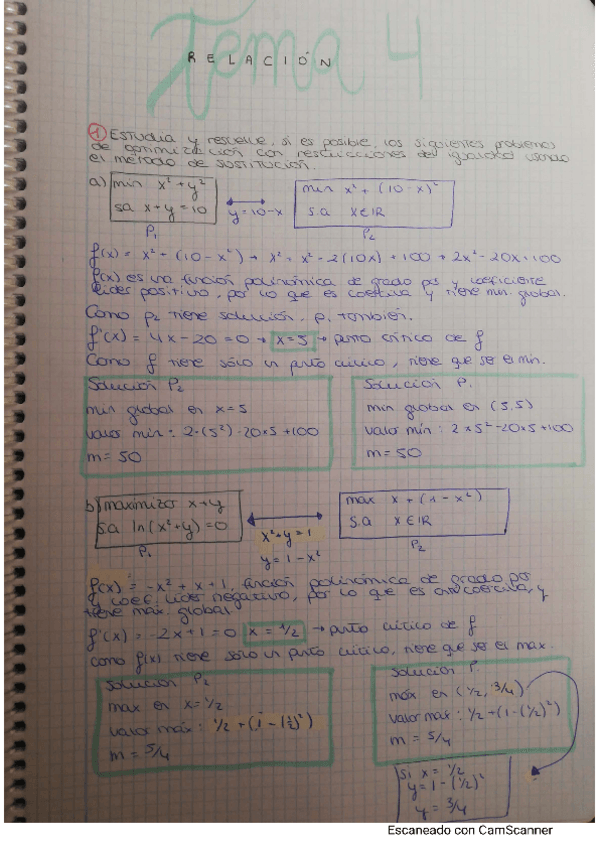 Tema 4
RELACIÓN
① Estudia y resuelve, si es posible, los siguientes problemas
de optimización con restricciones de igualdad usando
el método de sustitución.
a) min x² + y²
s.a x + y = 10
P₁
y = 10 - x
min x² + (10 - x)²
s.a x ∈ IR
P₂
f(x) = x² + (10 - x²) → x² + x² - 2(10x) + 100 + 2x² - 20x + 100
f(x) es una función polinómica de grado par y coeficiente
líder positivo, por lo que es coerciva y tiene min. global.
Como P₂ tiene solución, P₁ también.
f'(x) = 4x - 20 = 0 → x = 5 → punto crítico de f
Como f tiene sólo un punto crítico, tiene que ser el min.
Solución P₂
min global en x = 5
valor min: 2·(5²) - 20×5 + 100
m = 50
Solución P₁
min global en (5,5)
valor mín: 2×5² - 20×5 + 100
m = 50
b) maximizar x + y
s.a ln(x² + y) = 0
P₁
x² + y = 1
y = 1 - x²
max x + (1 - x²)
s.a x ∈ IR
P₂
f(x) = -x² + x + 1, función polinómica de grado par
y coef. líder negativo, por lo que es anticoerciva, y
tiene máx. global
f'(x) = -2x + 1 = 0 x = 1/2 → punto crítico de f
como f(x) tiene sólo un punto crítico, tiene que ser el max.
Solución P₂
max en x = 1/2
valor máx: 1/2 + (1 - (1/2)²)
m = 5/4
Solución P₁
máx en (1/2, 3/4)
valor max: 1/2 + (1 - (1/2)²)
m = 5/4
Si x = 1/2
y = 1 - (1/2)²
y = 3/4
Escaneado con CamScanner